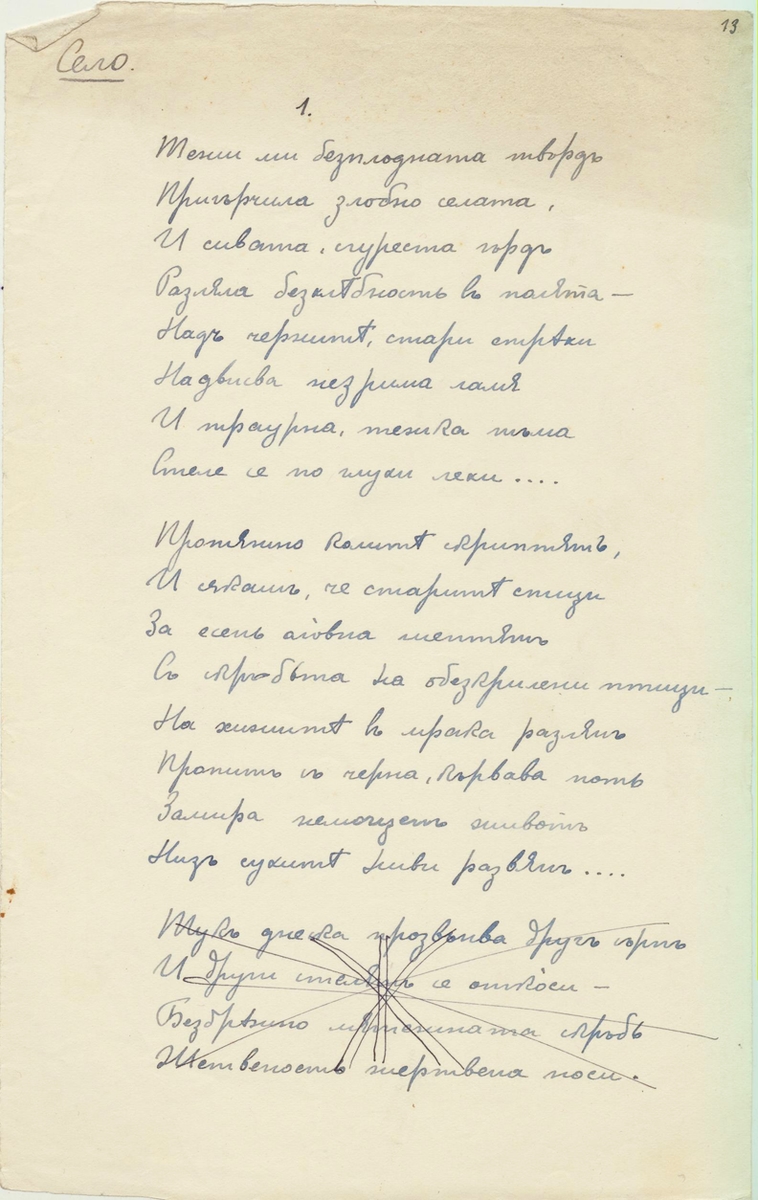 13
Село.
1.
Тежи ми безплодната твърдь
Пригърчила злобно селата,
И сивата, сгуреста гърдь
Разляла безхлѣбность въ полята —
Надъ чернитѣ, стари стрѣхи
Надвисва незрима ламя
И траурна, тежка тъма
Стеле се по глухи лехи....
Протяжно колитѣ скриптятъ,
И сякашъ, че старитѣ спици
За есень шептятъ
Съ скръбьта на обезкрилени птици —
На хижитѣ въ мрака разлянъ
Пропитъ съ черна, кървава поть
Замира немощенъ животъ
Низъ сухитѣ ниви развянъ....
Тукъ днеска прозвънва другъ сърпъ
И други се откоси —
Безбрѣжно скръбь
жертвена носи.